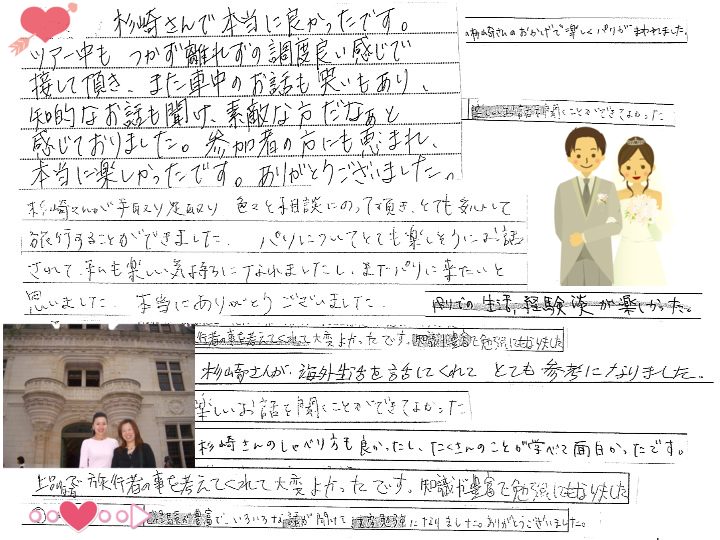 杉崎さんで本当に良かったです。
ツアー中も つかず離れずの調度良い感じで
接して頂き、また車中のお話も笑いもあり、
知的なお話も聞け、素敵な方だなぁと
感じておりました。参加者の方にも恵まれ、
本当に楽しかったです。ありがとうございました。
杉崎さんのおかげで楽しくパリがまわれました。
楽しいお話を聞くことができてよかった
杉崎さんが手取り足取り 色々と相談にのって頂き、とても安心して
旅行することができました。 パリについてとても楽しそうにお話
されて、私も楽しい気持ちになれましたし、またパリに来たいと
思いました。 本当にありがとうございました。
での生活,経験談が楽しかった。
行者の事を考えてくれて大変よかったです。知識が豊富で勉強にもなりました
杉崎さんが、海外生活を話してくれて とても参考になりました。
楽しいお話を聞くことができてよかった
杉崎さんのしゃべり方も良かったし、たくさんのことが学べて面白かったです。
上品で旅行者の事を考えてくれて大変よかったです。知識が豊富で勉強にもなりました
経験が豊富で、いろいろな話が聞けて になりました。ありがとうございました。